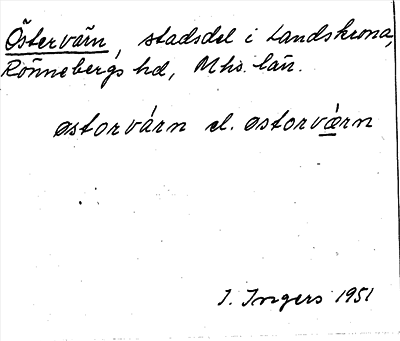 Östervärn, stadsdel i Landskrona,
Rönnebergs hd, Mhs. län.
østorvárn el. østorvǽrn
I. Ingers 1951